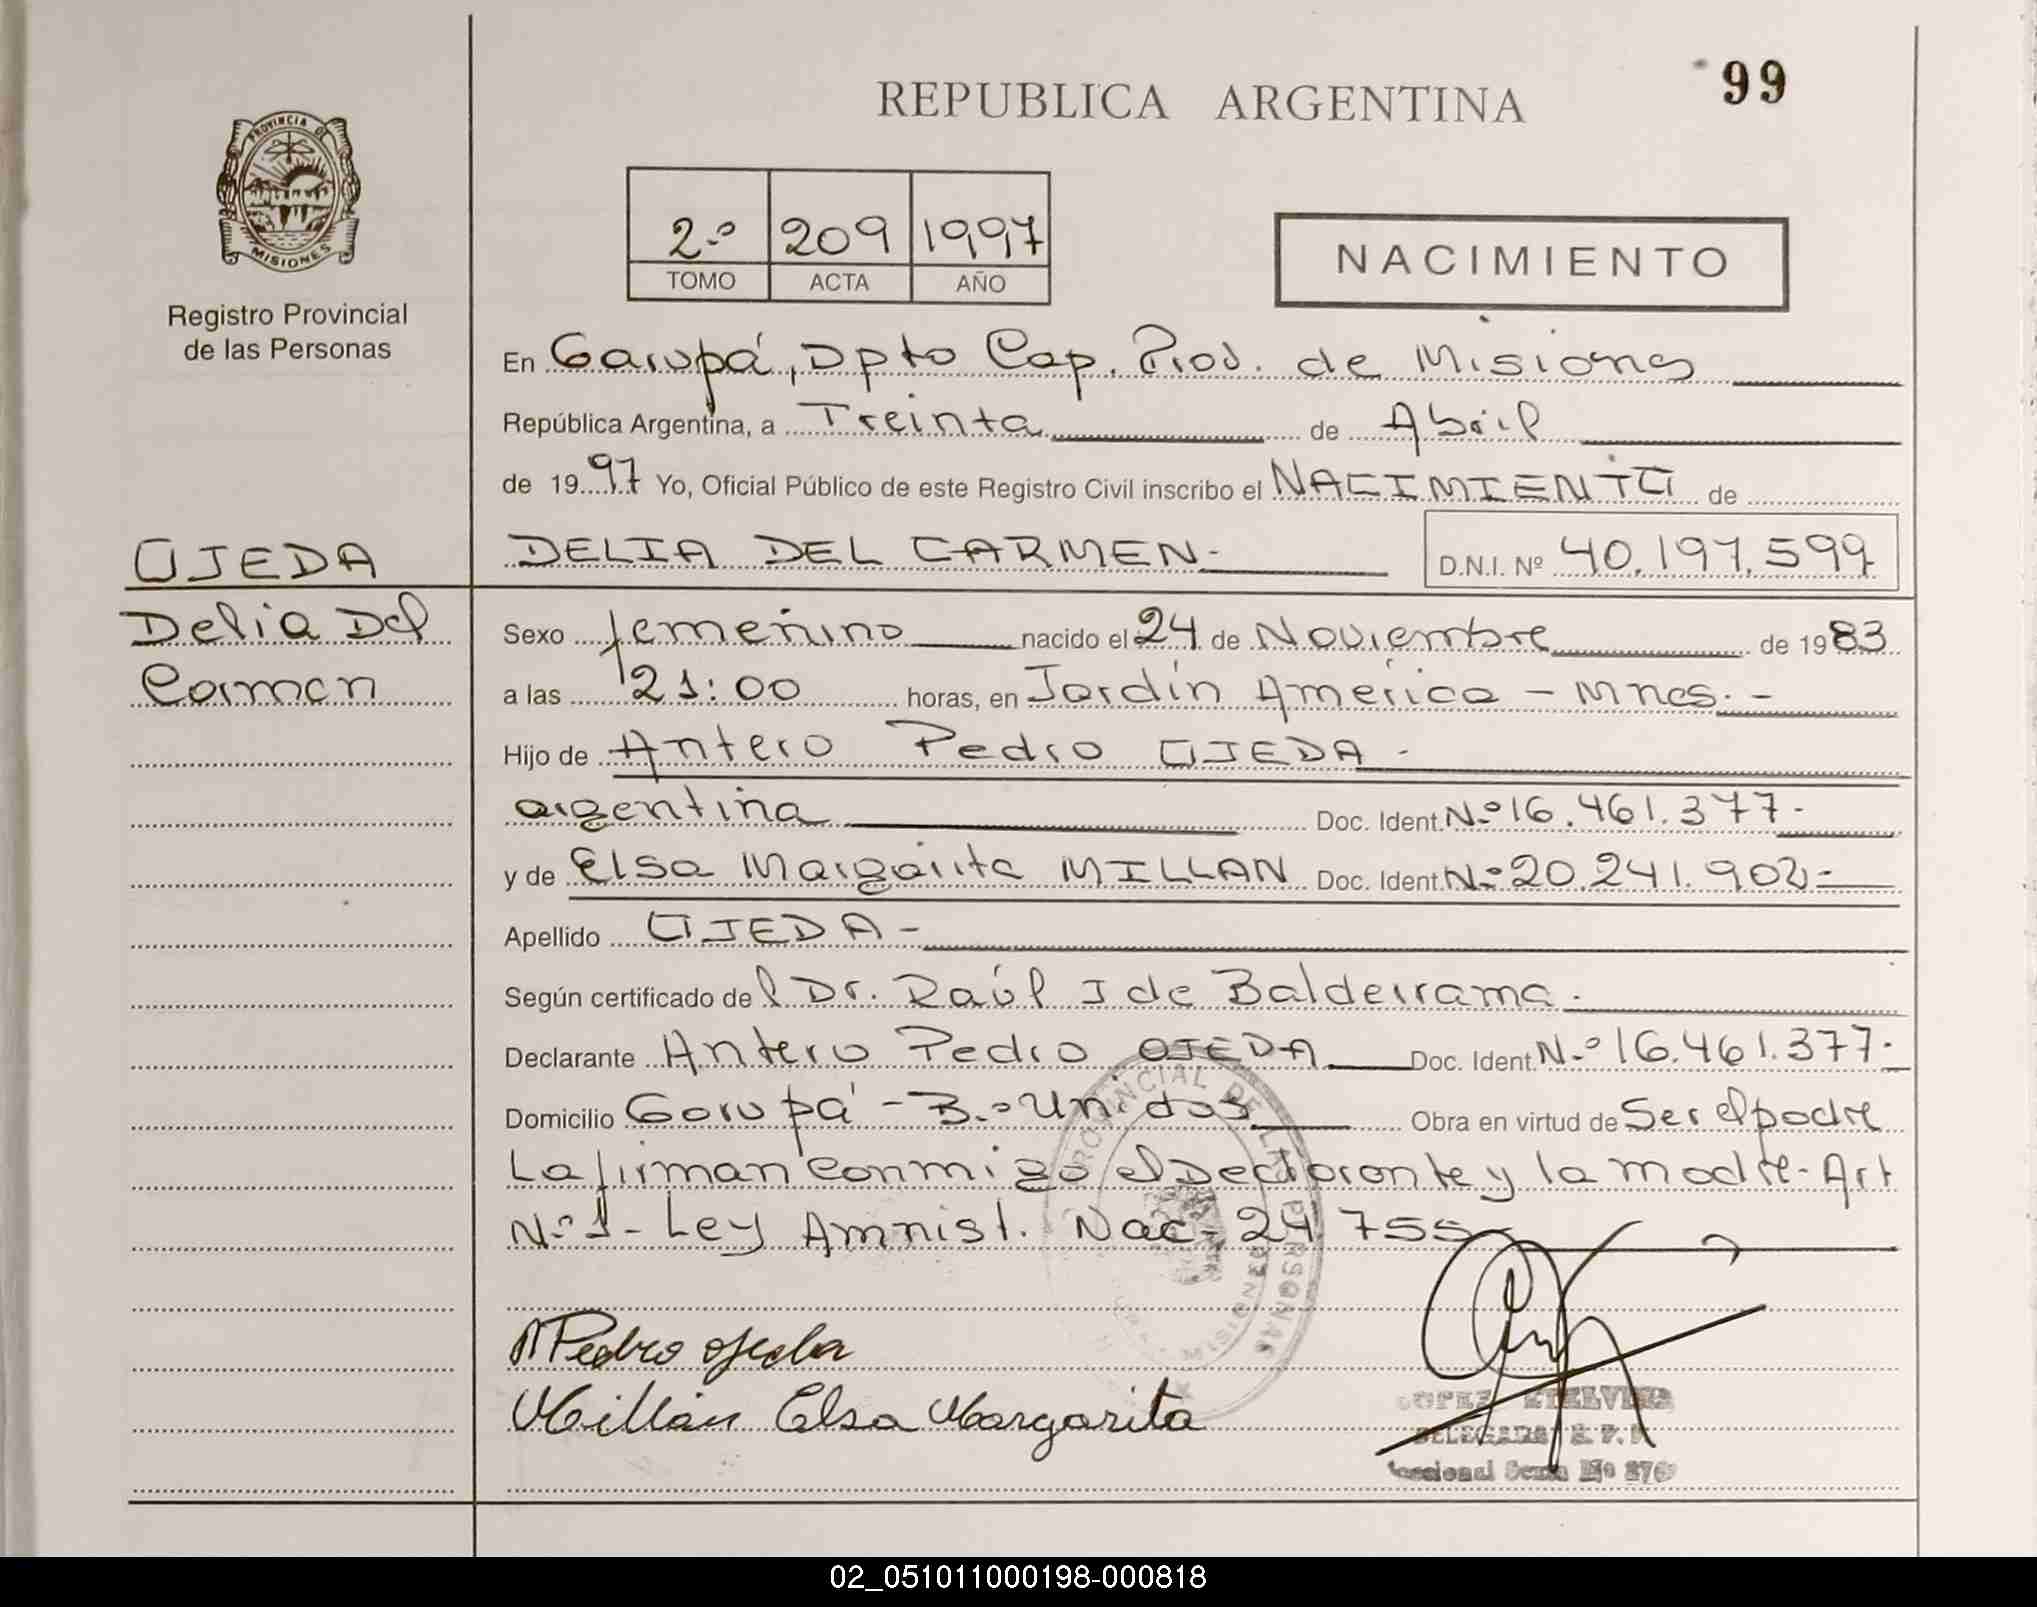 REPUBLICA ARGENTINA
99
PROVINCIA DE
MISIONES
Registro Provincial
de las Personas
2º 209 1997
TOMO ACTA AÑO
NACIMIENTO
En Garupá, Dpto Cap. Prov. de Misiones
República Argentina, a Treinta de Abril
de 1997 Yo, Oficial Público de este Registro Civil inscribo el NACIMIENTO de
OJEDA
DELIA DEL CARMEN- D.N.I. Nº 40.197.599
Delia Del
Carmen
Sexo femenino nacido el 24 de Noviembre de 1983
a las 21:00 horas, en Jardín América - Mnes. -
Hijo de Antero Pedro OJEDA -
argentina Doc. Ident. Nº 16.461.377-
y de Elsa Margarita MILLAN Doc. Ident. Nº 20.241.902-
Apellido OJEDA -
Según certificado del Dr. Raúl J de Balderrama.
Declarante Antero Pedro OJEDA Doc. Ident. Nº 16.461.377-
Domicilio Garupá - Bº Unidos Obra en virtud de Ser el padre
La firman conmigo el Declarante y la madre- Art
Nº 1- Ley Amnist. Nac- 24755
PROVINCIAL DE LAS PERSONAS
A Pedro ojeda
Millán Elsa Margarita
LOPEZ ETELVINA
DELEGADA R. P. P.
Seccional Sexta Nº 276
02_051011000198-000818